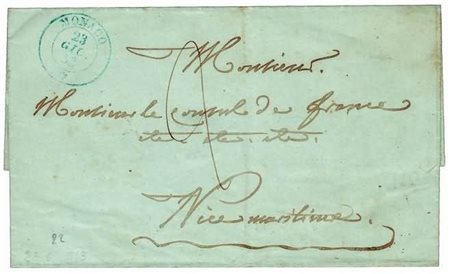 MONACO
23
GIU
Monsieur.
Monsieur le consul de france
etc. etc. etc.
Nice maritime.
22